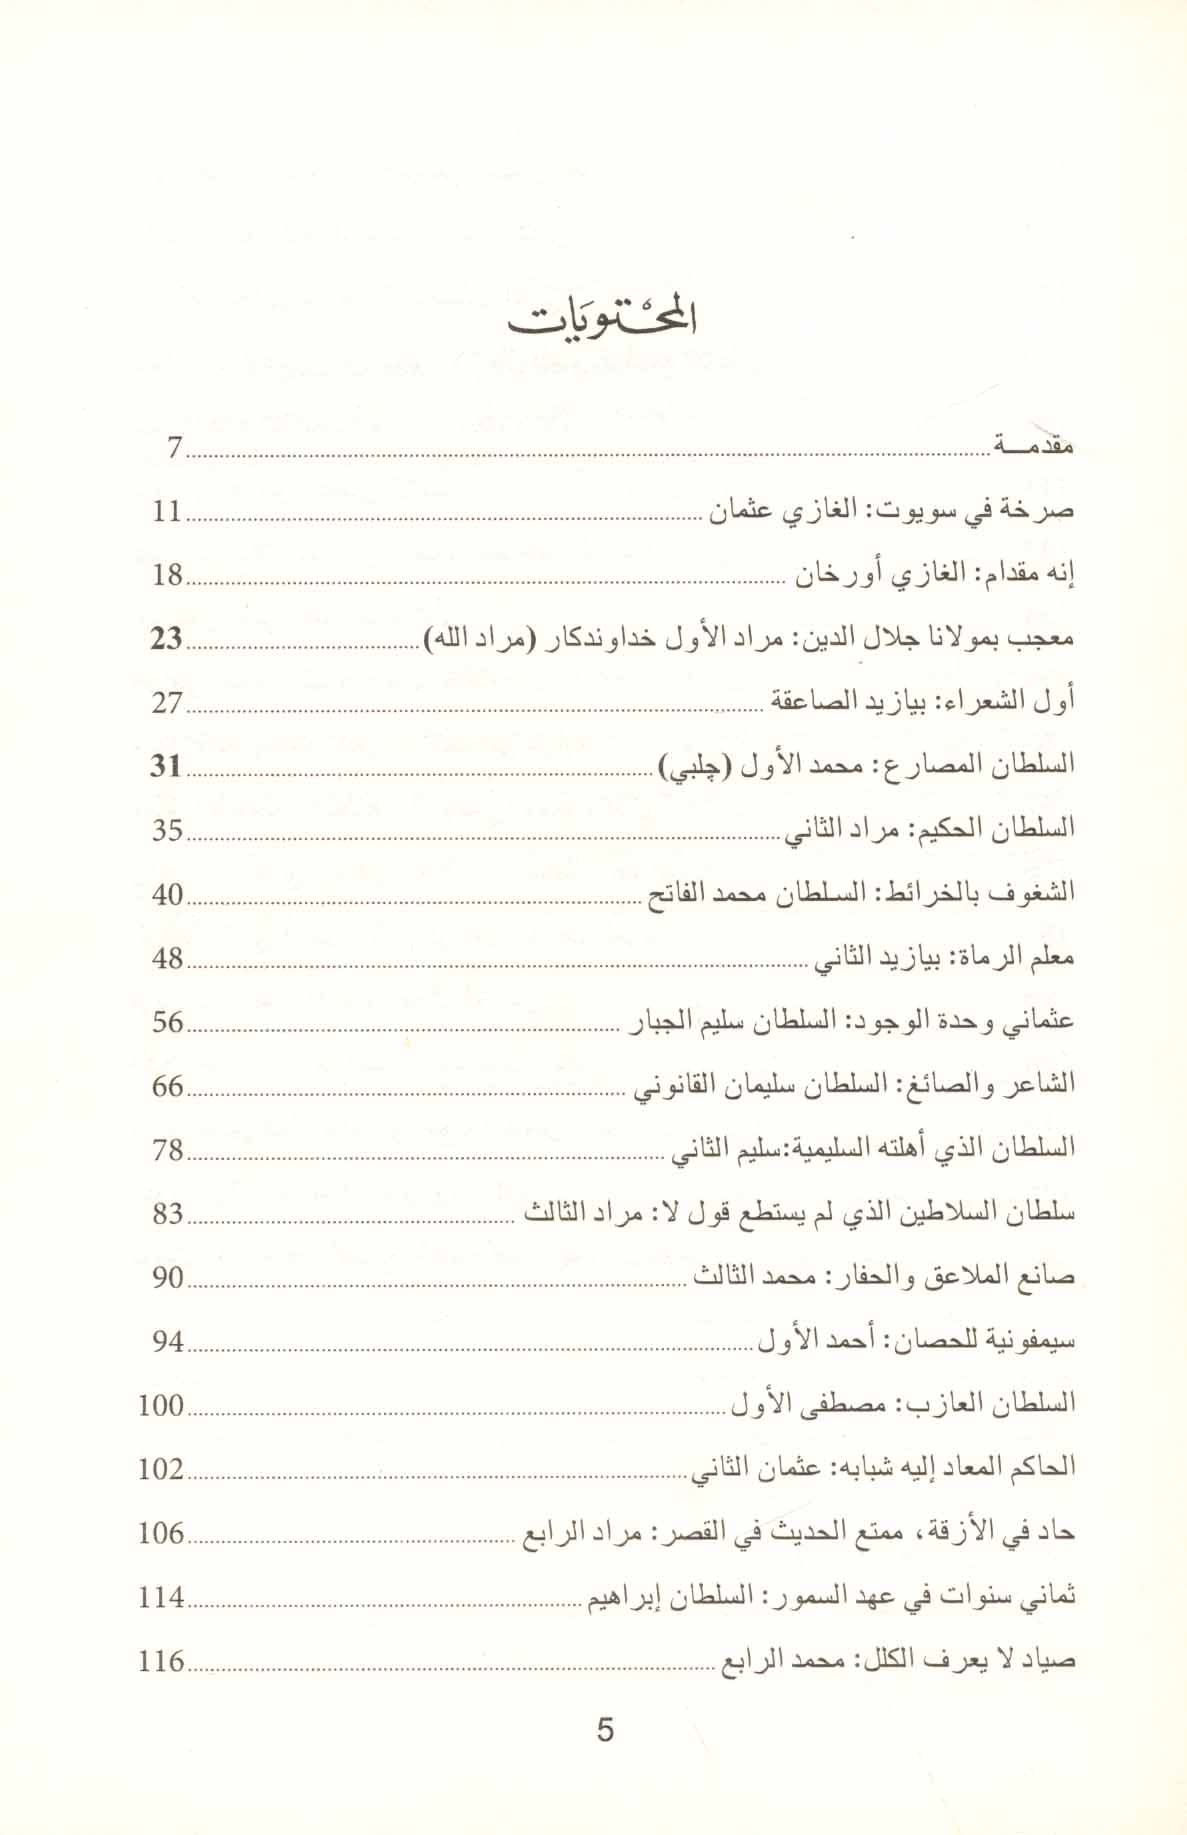 المحتويات
مقدمة 7
صرخة في سويوت: الغازي عثمان 11
إنه مقدام: الغازي أورخان 18
معجب بمولانا جلال الدين: مراد الأول خداوندكار (مراد الله) 23
أول الشعراء: بيازيد الصاعقة 27
السلطان المصارع: محمد الأول (چلبي) 31
السلطان الحكيم: مراد الثاني 35
الشغوف بالخرائط: السلطان محمد الفاتح 40
معلم الرماة: بيازيد الثاني 48
عثماني وحدة الوجود: السلطان سليم الجبار 56
الشاعر والصائغ: السلطان سليمان القانوني 66
السلطان الذي أهلته السليمية:سليم الثاني 78
سلطان السلاطين الذي لم يستطع قول لا: مراد الثالث 83
صانع الملاعق والحفار: محمد الثالث 90
سيمفونية للحصان: أحمد الأول 94
السلطان العازب: مصطفى الأول 100
الحاكم المعاد إليه شبابه: عثمان الثاني 102
حاد في الأزقة، ممتع الحديث في القصر: مراد الرابع 106
ثماني سنوات في عهد السمور: السلطان إبراهيم 114
صياد لا يعرف الكلل: محمد الرابع 116
5